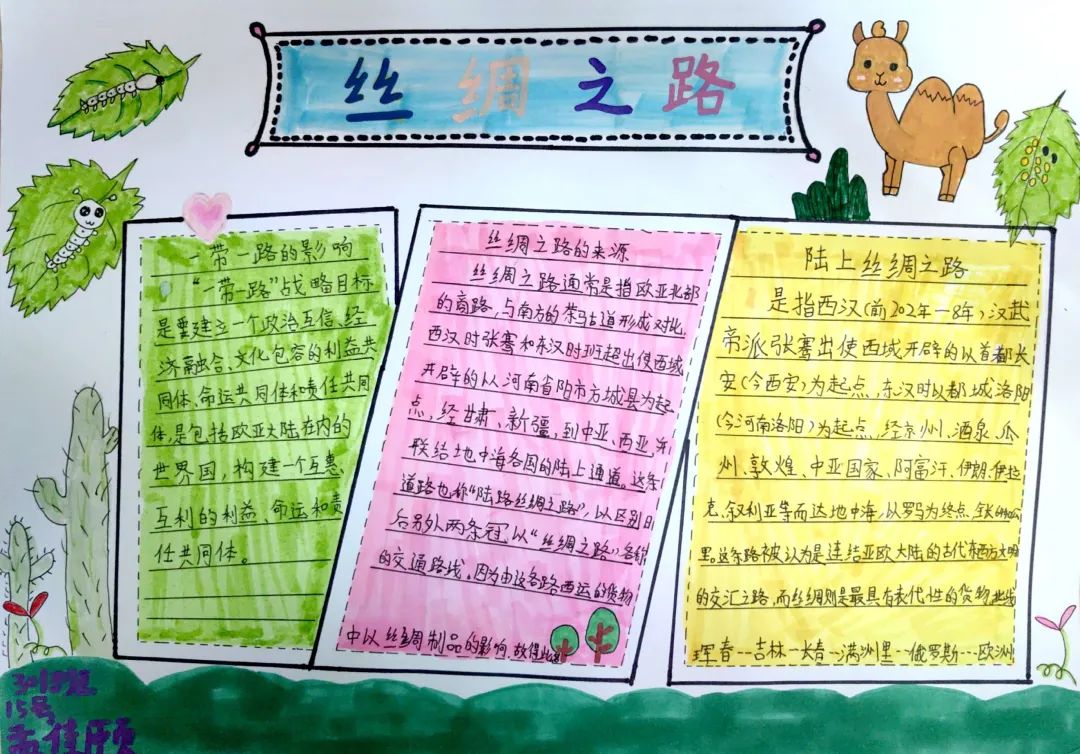 丝绸之路
一带一路的影响
“一带一路”战略目标
是要建立一个政治互信、经
济融合、文化包容的利益共
同体、命运共同体和责任共同
体,是包括欧亚大陆在内的
世界国,构建一个互惠
互利的利益、命运和责
任共同体。
丝绸之路的来源
丝绸之路通常是指欧亚北部
的商路,与南方的茶马古道形成对比,
西汉时张骞和东汉时班超出使西域
开辟的以河南省阳市方城县为起
点,经甘肃、新疆,到中亚、西亚,并
联结地中海各国的陆上通道。这条
道路也称“陆路丝绸之路”,以区别日
后另外两条冠以“丝绸之路”名称
的交通路线。因为由这各路西运的货物
中以丝绸制品的影响,故得此
陆上丝绸之路
是指西汉(前202年—8年),汉武
帝派张骞出使西域开辟的以首都长
安(今西安)为起点,东汉时以都城洛阳
(今河南洛阳)为起点,经京州、酒泉、瓜
州、敦煌、中亚国家、阿富汗、伊朗、伊拉
克、叙利亚等而达地中海,以罗马为终点,全长
里。这条路被认为是连结亚欧大陆的古代东西方文明
的交汇之路,而丝绸则是最具有表代性的货物
珲春--吉林--长春--满洲里--俄罗斯---欧洲
15号